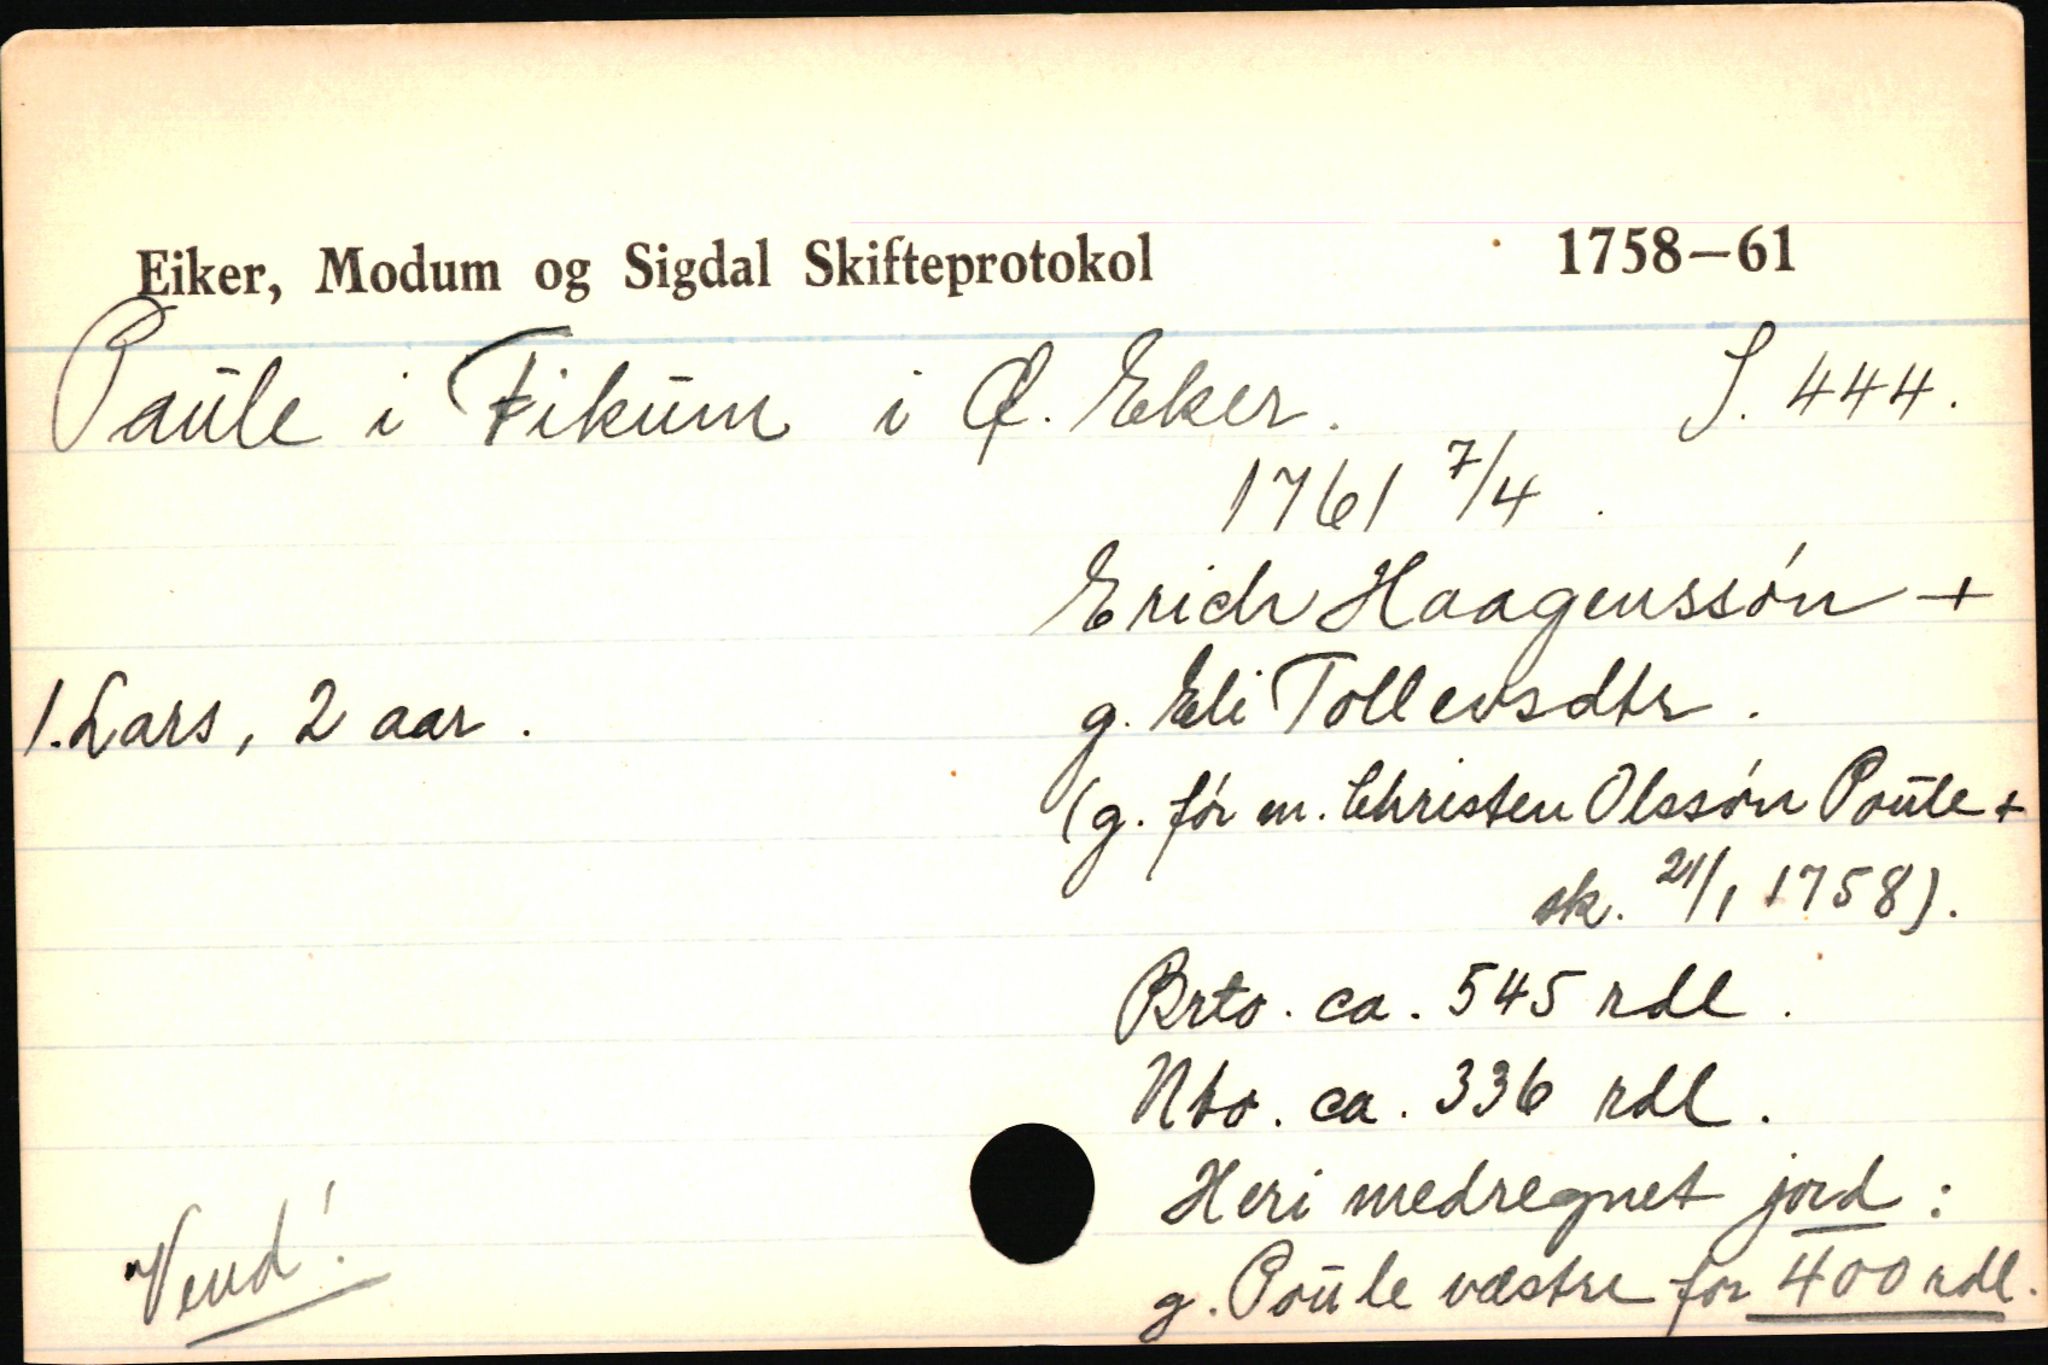 Eiker, Modum og Sigdal Skifteprotokol 1758–61
Paule i Fikum i Ø. Eker. S. 444.
1761 7/4.
Erich Haagenssøn +
1. Lars, 2 aar. g. Eli Tollevsdtr.
(g. før m. Christen Olssøn Poule +
sk. 21/1 1758).
Brto. ca. 545 rdl.
Nto. ca. 336 rdl.
Heri medregnet jord:
Vend! g. Poule væstre for 400 rdl.